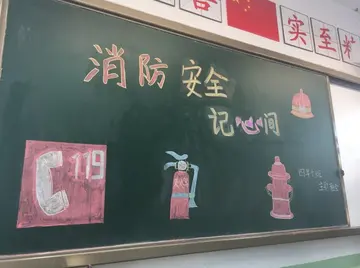 实至
消防安全
记心间
119